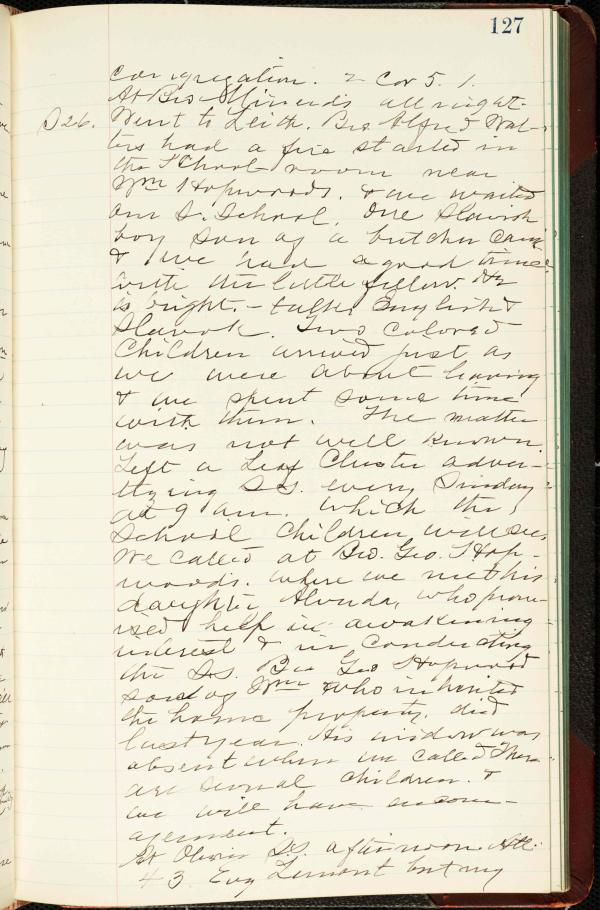 127
congregation. 2 Cor 5. 1.
At Bro Minerd's all night.
S 26. Went to Leith. Bro Alfred Wal-
ters had a fire started in
the School room near
Wm Hopwoods. & we waited
on S. School. One Slavish
boy son of a butcher came
& we had a good time
with the little fellow. He
is bright. - talks English &
Slavok. Two colored
children arrived just as
we were about leaving
& we spent some time
with them. The matter
was not well known.
Left a Leaf Cluster adver-
tizing S.S. every Sunday
at 9 am. which the
School children will see.
We called at Bro. Geo. Hop-
woods. where we met his
daughter Alvuda, who prom-
ised help in awakening
interest & in conducting
the S.S. Bro Geo Hopwood
son of Wm who inherited
the home property. died
last year. His widow was
absent when we called There
are several children. &
we will have encour-
agement.
At Oliver S.S. afternoon Att.
43. Eug Lemont but my